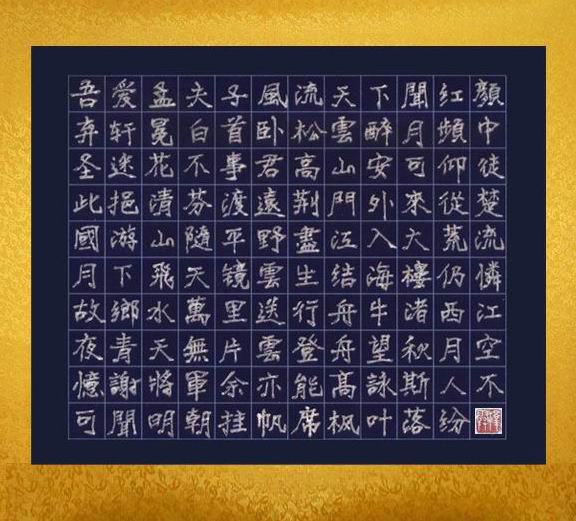 吾爱孟夫子風流天下聞红顏
弃轩冕白首卧松雲醉月頻中
圣迷花不事君高山安可仰徒
此挹清芬渡遠荆門外來從楚
國游山隨平野盡江入大荒流
月下飛天镜雲生结海樓仍憐
故鄉水萬里送行舟牛渚西江
夜青天無片雲登舟望秋月空
憶謝將軍余亦能高詠斯人不
可聞明朝挂帆席枫叶落纷